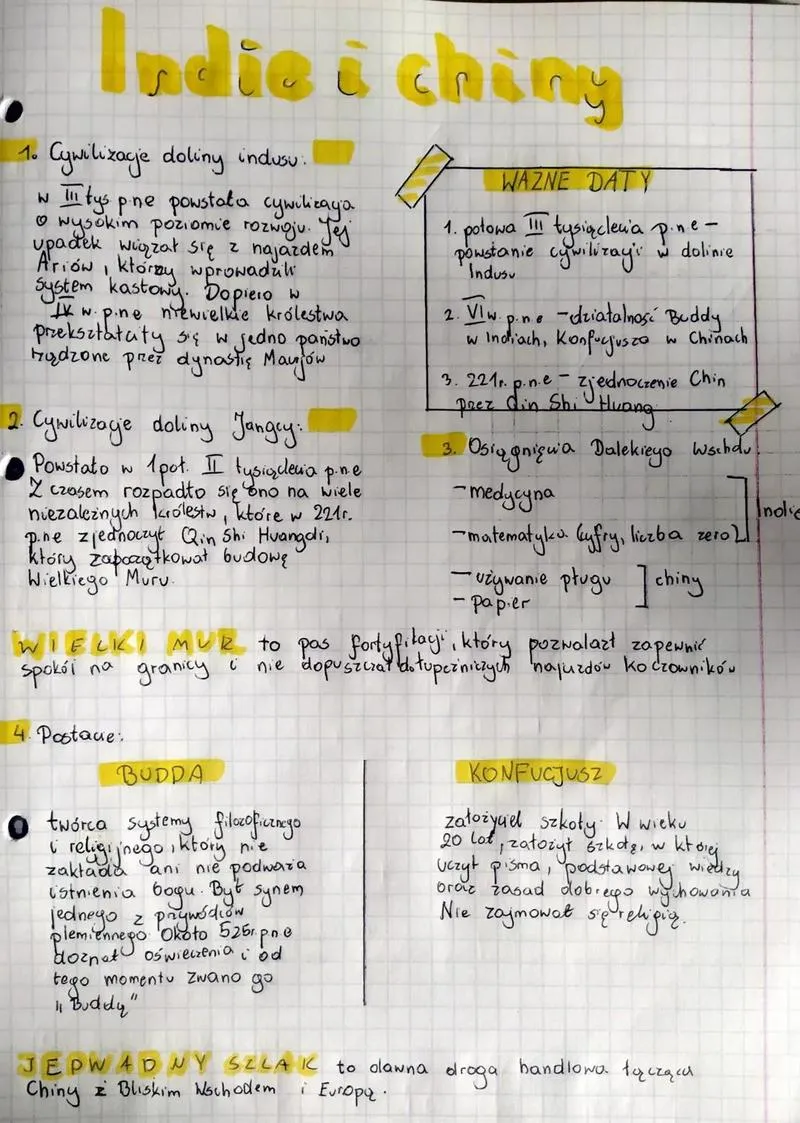 Indie i chiny
1. Cywilizacje doliny indusu.
W III tys p.ne powstała cywilizacja
o wysokim poziomie rozwoju. Jej
upadek wiązał się z najazdem
Ariów, którzy wprowadzili
System kastowy. Dopiero w
IV w. p.ne niewielkie królestwa
przekształciły się w jedno państwo
rządzone przez dynastię Maurjów
WAŻNE DATY
1. połowa III tysiąclecia p.n.e –
powstanie cywilizacji w dolinie
Indusu
2. VI w. p.n.e – działalność Buddy
w Indiach, Konfucjusza w Chinach
3. 221r. p.n.e – zjednoczenie Chin
przez Qin Shi Huang
2. Cywilizacje doliny Jangcy:
Powstało w 1 poł. II tysiąclecia p.n.e
Z czasem rozpadło się ono na wiele
niezależnych królestw, które w 221r.
p.ne zjednoczył Qin Shi Huangdi,
który zapoczątkował budowę
Wielkiego Muru.
3. Osiągnięcia Dalekiego Wschodu:
– medycyna
– matematyka (cyfry, liczba zero)
Indie
– używanie pługu
– papier
chiny
WIELKI MUR to pas fortyfikacji, który pozwalał zapewnić
spokój na granicy i nie dopuszczał do łupieżniczych najazdów koczowników
4. Postacie:
BUDDA
twórca systemy filozoficznego
i religijnego, który nie
zakłada ani nie podważa
istnienia bogu. Był synem
jednego z przywódców
plemiennego. Około 526r. p.n.e
doznał oświecenia i od
tego momentu zwano go
„Buddy"
KONFUCJUSZ
założyciel szkoły. W wieku
20 lat, założył szkołę, w której
uczył pisma, podstawowej wiedzy
oraz zasad dobrego wychowania
Nie zajmował się religią.
JEDWABNY SZLAK to dawna droga handlowa łącząca
Chiny z Bliskim Wschodem i Europą.